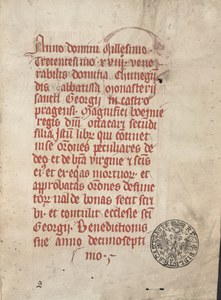 Anno domini Millesimo
Trecentesimo xviii vene
rabilis domina Chunegū
dis abbatissa monasterii
sancti Georgii in castro
pragensi. Magnifici boemie
regis dn̄i ottacari secūdi
filia, istū librū qui cōtinet
in se orōnes peculiares de
deo et de btā virgine et scīs
et er eoꝛ mortuoꝝ et
approbatas orōnes defunc
toꝝ valde bonas fecit scri
bi. et contulit ecclesie scī
Georgii. Benedictionis
sue anno decimosepti
mo
2